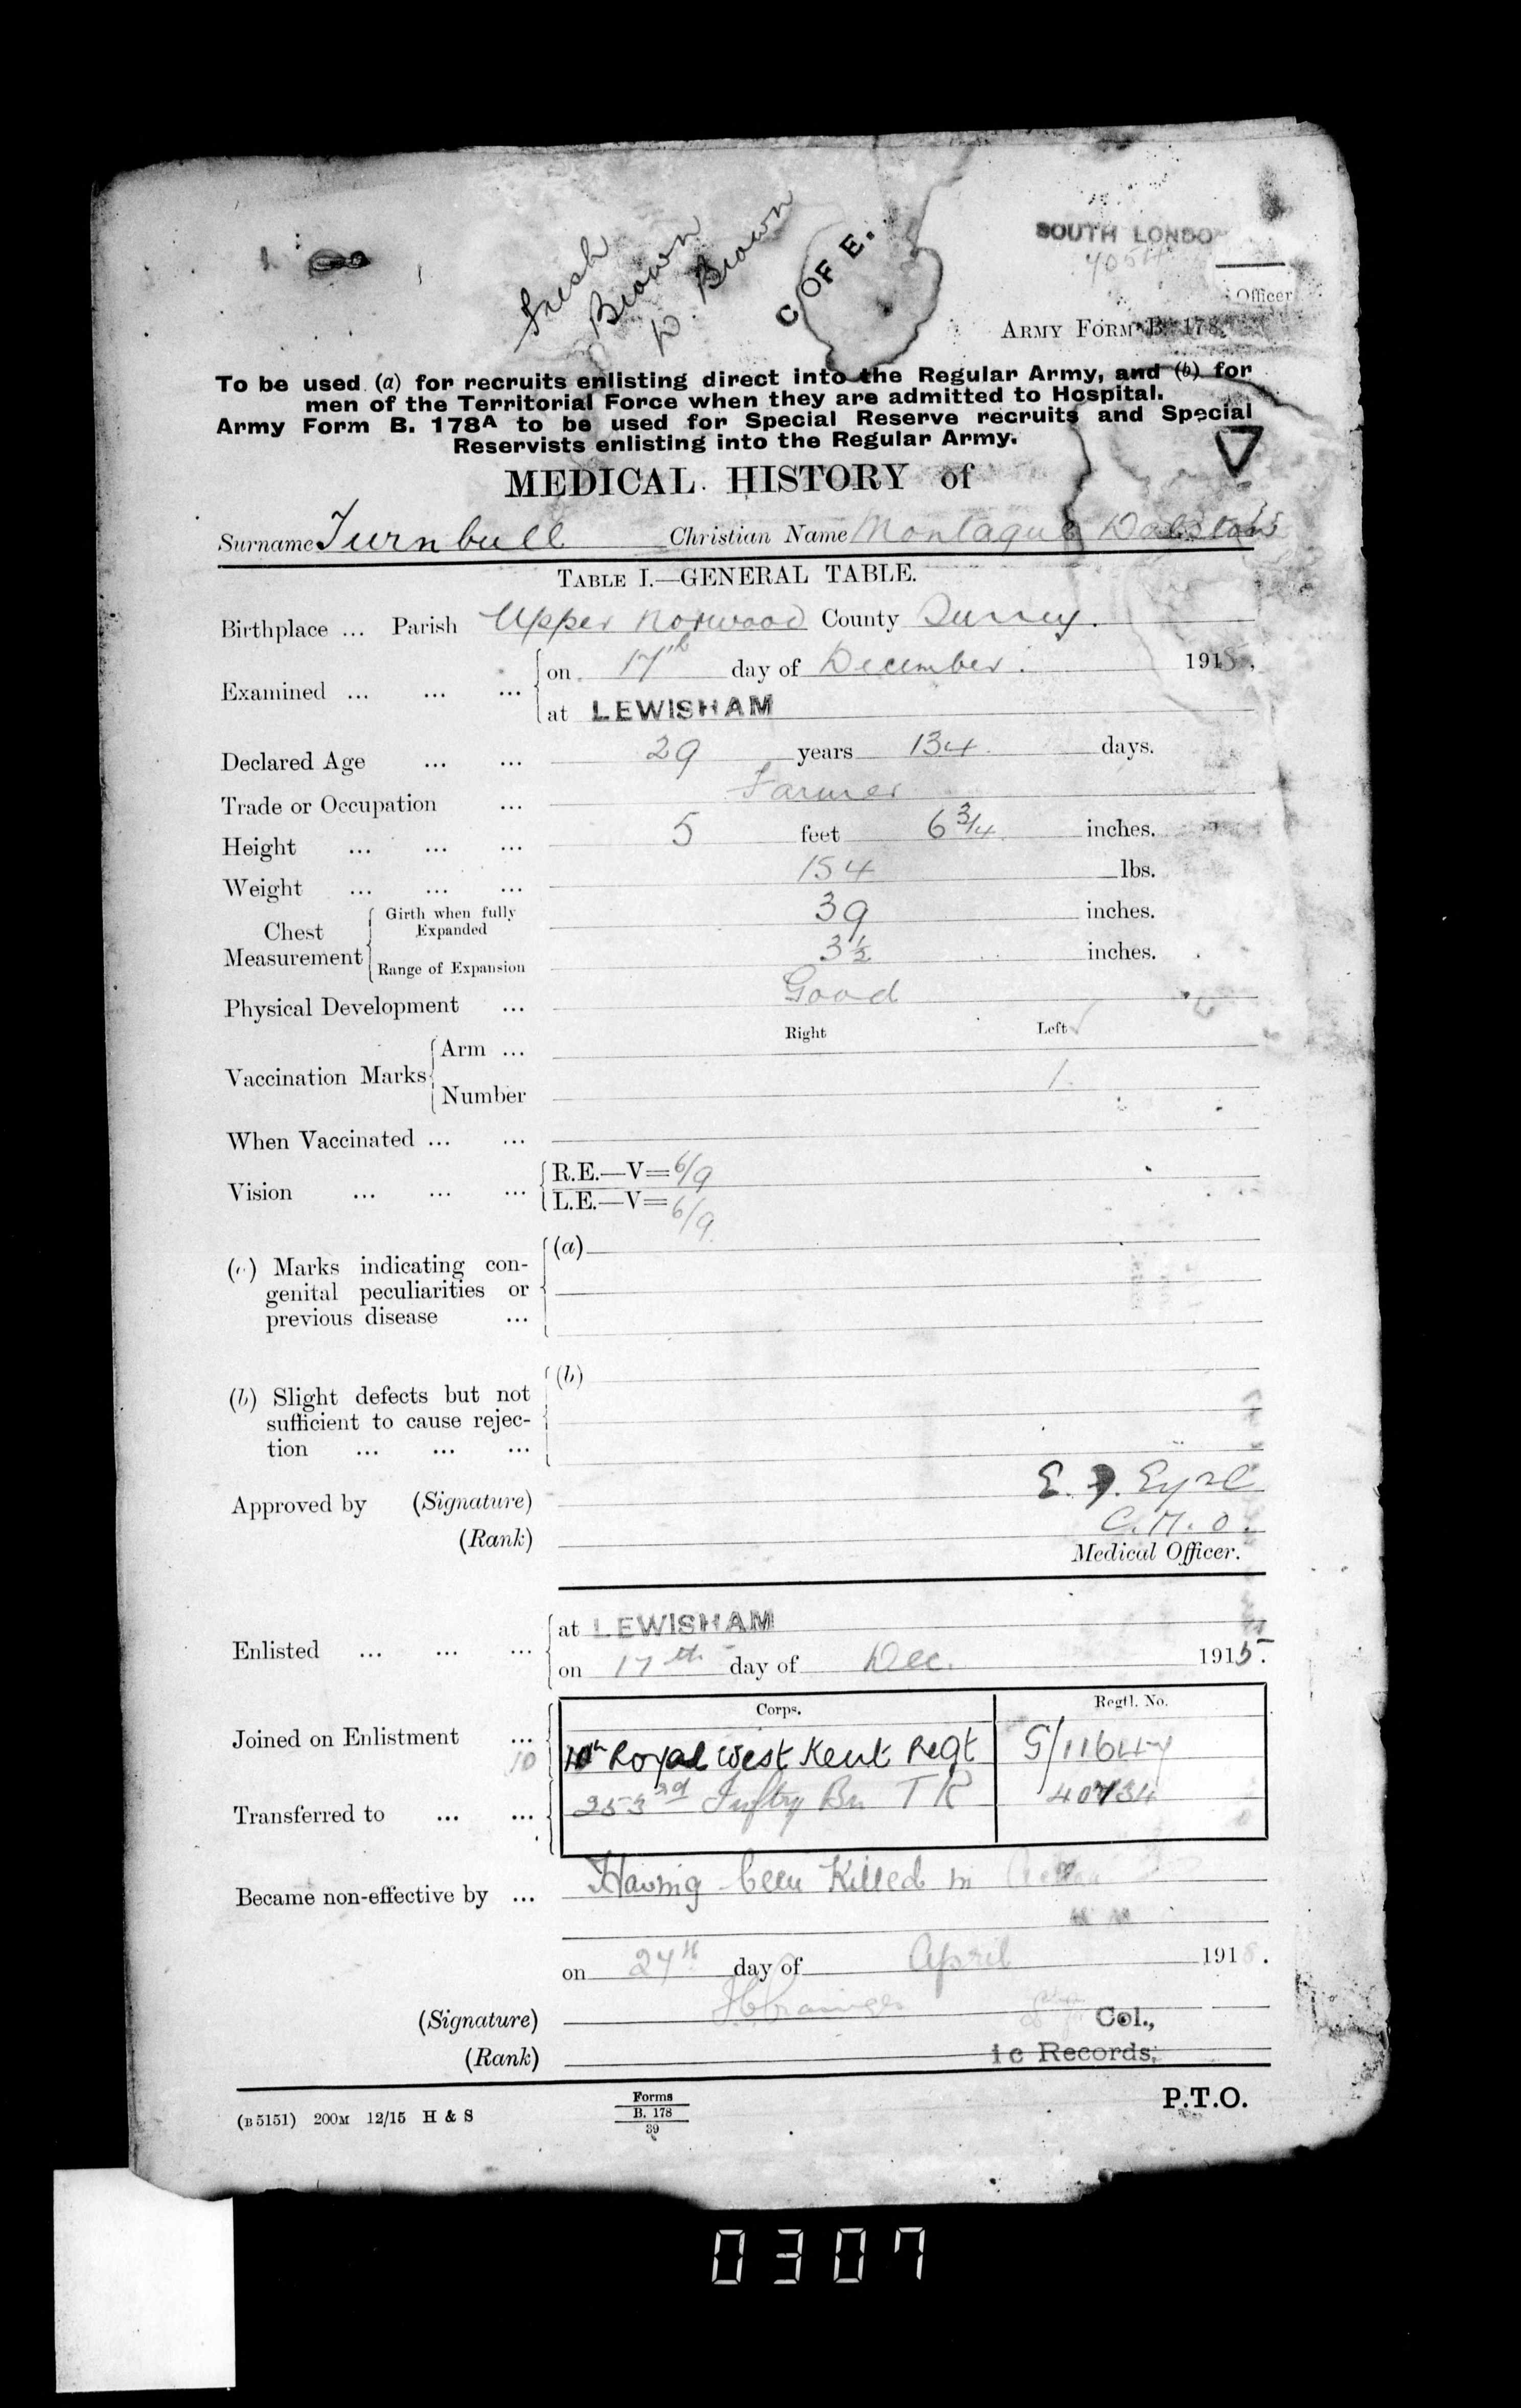 Fresh
Brown
D. Brown
C OF E.
SOUTH LONDO
Officer
ARMY FORM B. 178.
To be used (a) for recruits enlisting direct into the Regular Army, and (b) for
men of the Territorial Force when they are admitted to Hospital.
Army Form B. 178A to be used for Special Reserve recruits and Special
Reservists enlisting into the Regular Army.
MEDICAL HISTORY of
Surname Turnbull Christian Name Montague
TABLE I.—GENERAL TABLE.
Birthplace ... Parish Upper Norwood County Surrey.
Examined ... ... ... on 17th day of December. 1915.
at LEWISHAM
Declared Age ... ... 29 years 134 days.
Trade or Occupation ... Farmer
Height ... ... ... 5 feet 6 3/4 inches.
Weight ... ... ... 154 lbs.
Chest Measurement Girth when fully Expanded 39 inches.
Range of Expansion 3 1/2 inches.
Physical Development ... Good
Right Left
Vaccination Marks Arm ...
Number 1
When Vaccinated ... ...
Vision ... ... ... R.E.—V=6/9
L.E.—V=6/9
(a) Marks indicating con-
genital peculiarities or
previous disease ...
(a)
(b) Slight defects but not
sufficient to cause rejec-
tion ... ... ...
(b)
Approved by (Signature) E. J. Eyre
(Rank) C.M.O.
Medical Officer.
Enlisted ... ... ... at LEWISHAM
on 17th day of Dec. 1915.
Corps. Regtl. No.
Joined on Enlistment ... 10 10th Royal West Kent Regt G/11644
Transferred to ... ... 253rd Inftry Bn T R 40734
Became non-effective by ... Having been Killed in Action
on 24th day of April 1918.
(Signature) Col.,
(Rank) i c Records,
P.T.O.
(B 5151) 200M 12/15 H & S
Forms
B. 178
39
0307